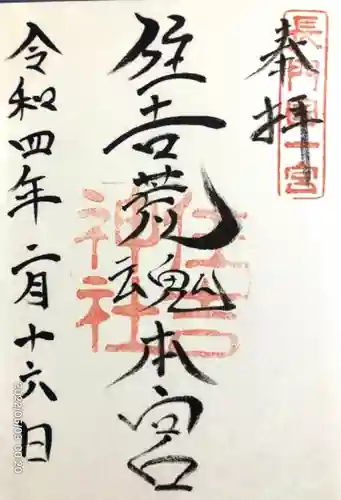 奉拝
長門國一宮
住吉荒魂本宮
住吉神社
令和四年二月十六日
2022/05/03 00:20